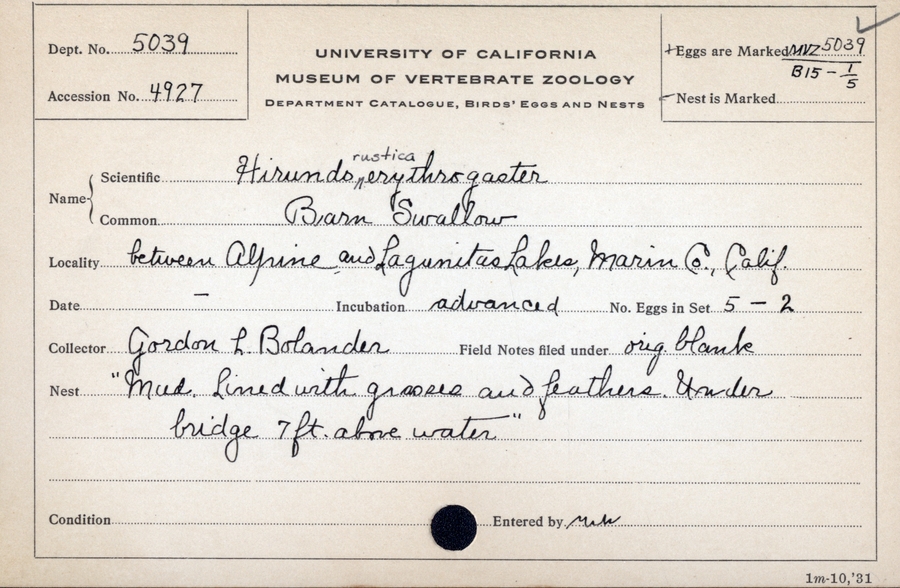 Dept. No. 5039
Accession No. 4927
UNIVERSITY OF CALIFORNIA
MUSEUM OF VERTEBRATE ZOOLOGY
DEPARTMENT CATALOGUE, BIRDS' EGGS AND NESTS
+Eggs are Marked MVZ 5039
B15 - 1/5
Nest is Marked
rustica
Name Scientific Hirundo erythrogaster
Common Barn Swallow
Locality between Alpine and Lagunitas Lakes, Marin Co., Calif.
Date - Incubation advanced No. Eggs in Set 5 - 2
Collector Gordon L. Bolander Field Notes filed under orig. blank
Nest "Mud. Lined with grasses and feathers. Under
bridge 7 ft. above water"
Condition Entered by
1m-10,'31